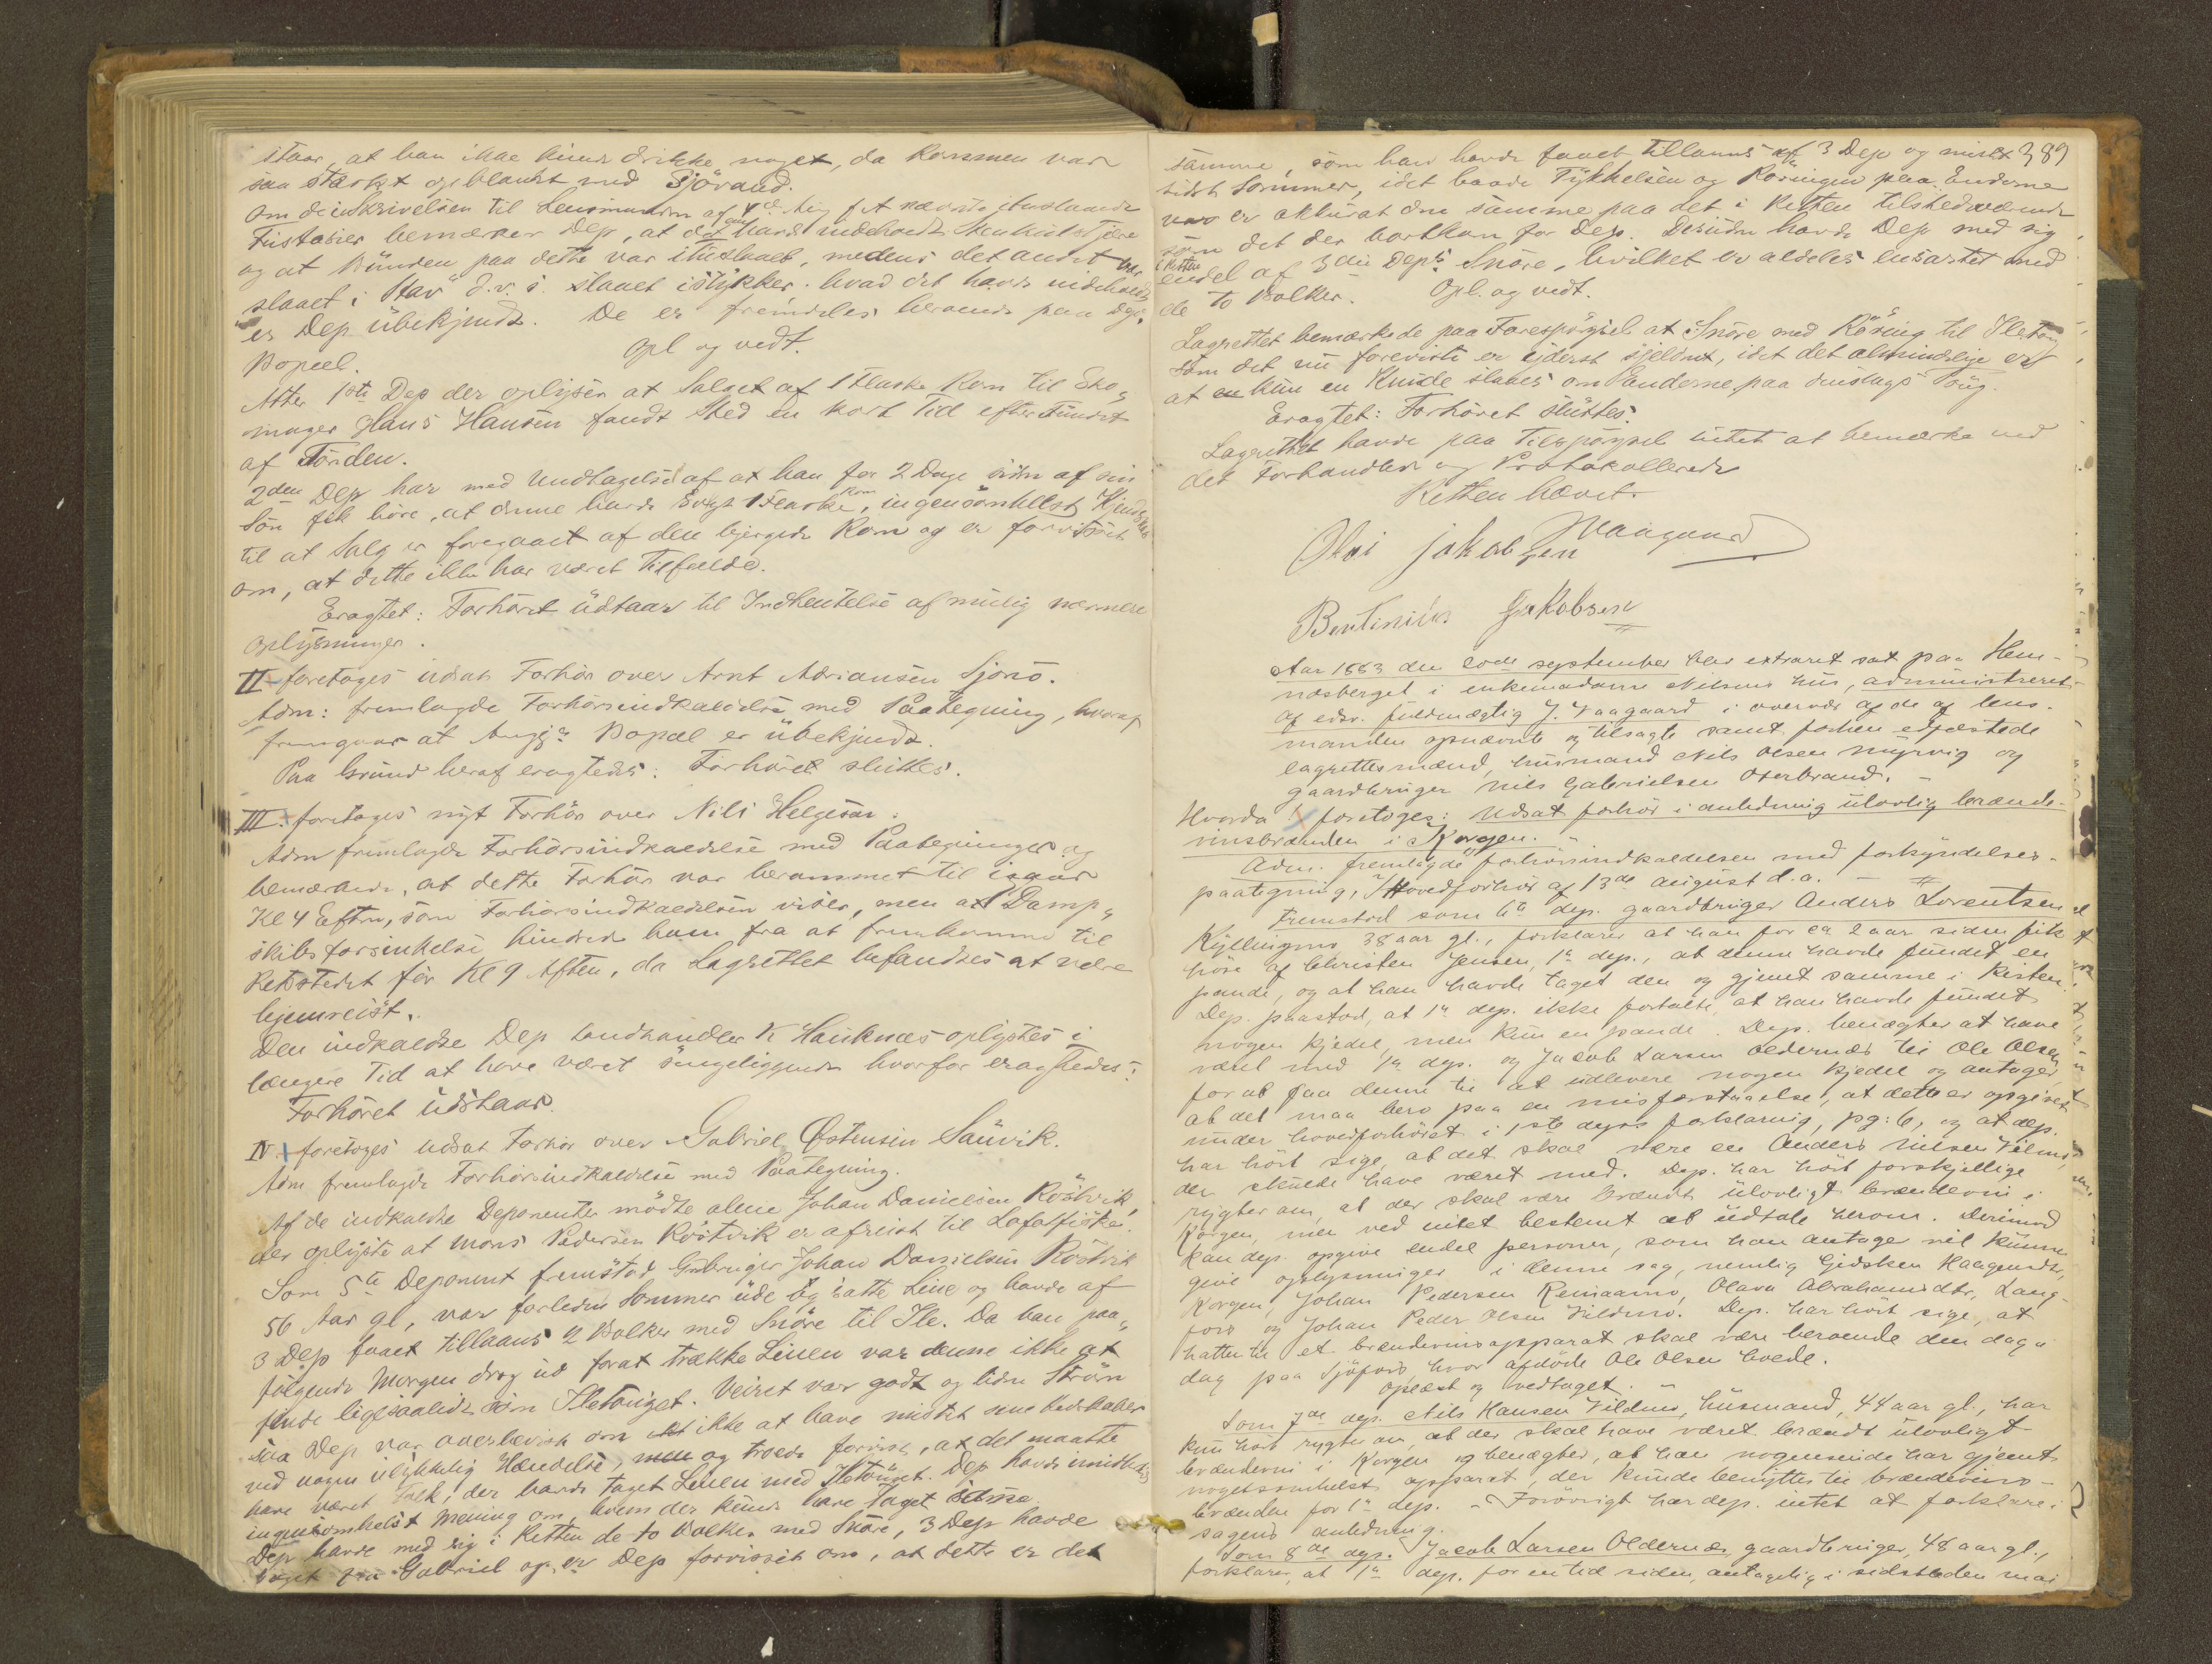 staar, at han ikke kunde drikke noget, da Rommen var
saa stærkt opblandet med Sjövand.
Om de i Skrivelsen til Lensmanden af 4de Aug f A nævnte ituslaaede
Fustasier bemærker Dep, at det ene havde indeholdt Stenkulstjære
og at Bunden paa dette var ituslaaet, medens det andet var
slaaet i "Stav" d.v.s. slaaet i stykker. hvad det havde indeholdt
er Dep ubekjendt. De er fremdeles beroende paa Dep.s
Bopæl.
Opl og vedt.
Atter 1ste Dep der oplyser at Salget af 1 Flaske Rom til Sko-
mager Hans Hansen fandt Sted en kort Tid efter Fundet
af Tönden.
2den Dep har med Undtagelse af at han for 2 Dage siden af sin
Sön fik höre, at denne havde solgt 1 Flaske Rom, ingensomhelst Kjendskab
til at Salg er foregaaet af den bjergede Rom og er forvisset
om, at dette ikke har været Tilfælde.
Eragtet: Forhöret udstaar til Indhentelse af mulig nærmere
oplysninger.
II foretoges udsat Forhör over Arnt Adriansen Sjonö.
Adm: fremlagde Forhörsindkaldelse med Paategning, hvoraf
fremgaar at Angj.s Bopæl er ubekjendt.
Paa Grund heraf eragtedes: Forhöret sluttes.
III. foretoges nyt Forhör over Nils Helgesen.
Adm fremlagde Forhörsindkaldelse med Paategninger og
bemærkede, at dette Forhör var berammet til igaar
Kl 4 Eftm, som Forhörsindkaldelsen viser, men at Damp-
skibsforsinkelse hindrede ham fra at fremkomme til
Retsstedet för Kl 9 Aften, da Lagrettet befandtes at være
hjemreist.
Den indkaldte Dep Landhandler K Hauknæs oplystes i
længere Tid at have været sengeliggende hvorfor eragtedes:
Forhöret udstaar.
IV foretoges udsat Forhör over Gabriel Østensen Saurik.
Adm fremlagde Forhörsindkaldelse med Paategning.
Af de indkaldte Deponenter mödte alene Johan Danielsen Rösvik,
der oplyste at Mons Pedersen Röstvik er afreist til Lofotfiske.
Som 5te Deponent fremstod Grbruger Johan Danielsen Röstvik
56 Aar gl, var forleden Sommer ude og satte Line og havde af
3 Dep faaet tillaans 2 Bolker med Snöre til Ile. Da han paa-
fölgende Morgen drog ud forat trække Linen var denne ikke at
finde ligesaalidt som Iletouget. Veiret var godt og liden Ström
saa Dep var overbevist om ikke at have mistet sine Redskaber
ved nogen ulykkelig Hændelse, og troede forvisst, at det maatte
have været Folk, der havde taget Linen med Iletouget. Dep havde imidlertid
ingensomhelst Mening om, hvem der kunde have taget samme.
Dep havde med sig i Retten de to Bolker med Snöre, 3 Dep havde
taget fra Gabriel og er Dep forvisset om, at dette er det
389
samme, som han havde faaet tillaans af 3 Dep og mistet
sidst Sommer, idet baade Tykkelsen og Röringen paa Enderne
er akkurat den samme paa det i Retten tilstedeværende
som det der bortkom for Dep. Desuden havde Dep med sig
i Retten
endel af 3die Dep.s Snöre, hvilket er aldeles ensartet med
de to Bolker. Opl. og vedt.
Lagrettet bemærkede paa Forespörgsel at Snöre med Röring til Iletoug
som det nu foreviste er yderst sjeldent, idet det almindelige er
at kun en Knude slaaes om Enderne paa deslags Toug
Eragtet: Forhöret sluttes.
Lagrettet havde paa Tilspörgsel intet at bemærke ved
det Forhandlede og Protokollerede
Retten hævet.
Vaagaard
Oloi Jakobsen
Bentinius Jakobsen
Aar 1883 den 20de september blev extraret sat paa Hem-
næsberget i enkemadame Nilsens hus, administreret
af edsv. fuldmægtig J. Vaagaard i overvær af de af lens-
manden opnævnte og tilsagte samt forhen edfæstede
lagrettesmænd, husmand Nils Olsen Myrvig og
gaardbruger Nils Gabrielsen Oterbrand.
Hvorda foretoges: Udsat forhör i anledning ulovlig brænde-
vinsbrænden i Korgen.
Adm. fremlagde forhörsindkaldelsen med forkyndelses-
paategning, Hovedforhör af 13de august d.a.
Fremstod som 6te dep. gaardbruger Anders Lorentsen
Kyllingmo, 38 aar gl., forklarer at han for ca 2 aar siden fik
höre af Christen Jensen, 1ste dep., at denne havde fundet en
pande, og at han havde taget den og gjemt samme i Kisten.
Dep. paastod, at 1ste dep. ikke fortalte, at han havde fundet
nogen kjedel, men kun en pande. Dep. benægter at have
været med 1ste dep. og Jacob Larsen Oldernæs til Ole Olsen
for at faa denne til at udlevere nogen kjedel og antager,
at det maa bero paa en misforstaaelse, at dette er opgivet
under hovedforhöret i 1ste deps forklaring, pg: 6, og at dep.
har hört sige, at det skal være en Anders Nilsen Vilmo,
der skulde have været med. Dep. har hört forskjellige
rygter om, at der skal være brændt ulovligt brændevin i
Korgen, men ved intet bestemt at udtale herom. Derimod
kan dep. opgive endel personer, som han antager vil kunne
give oplysninger i denne sag, nemlig Gidsken Haagensdtr,
Korgen, Johan Pedersen Remaamo, Olava Abrahamsdtr, Lang-
fors og Johan Peder Olsen Vildmo. Dep. har hört sige, at
hatten til et brændevinsapparat skal være beroende den dag i
dag paa Sjöfors hvor afdöde Ole Olsen boede.
oplæst og vedtaget.
Som 7de dep. Nils Hansen Vildmo, husmand, 44 aar gl., har
kun hört rygter om, at der skal have været brændt ulovligt
brændevin i Korgen og benægter, at han nogensinde har gjemt
nogetsomhelst apparat, der kunde benyttes til brændevins-
brænden for 1ste dep. Forövrigt har dep. intet at forklare i
sagens anledning.
Som 8de dep. Jacob Larsen Oldernæs, gaardbruger, 48 aar gl.,
forklarer, at 1ste dep. for en tid siden, antagelig i sidstleden mai